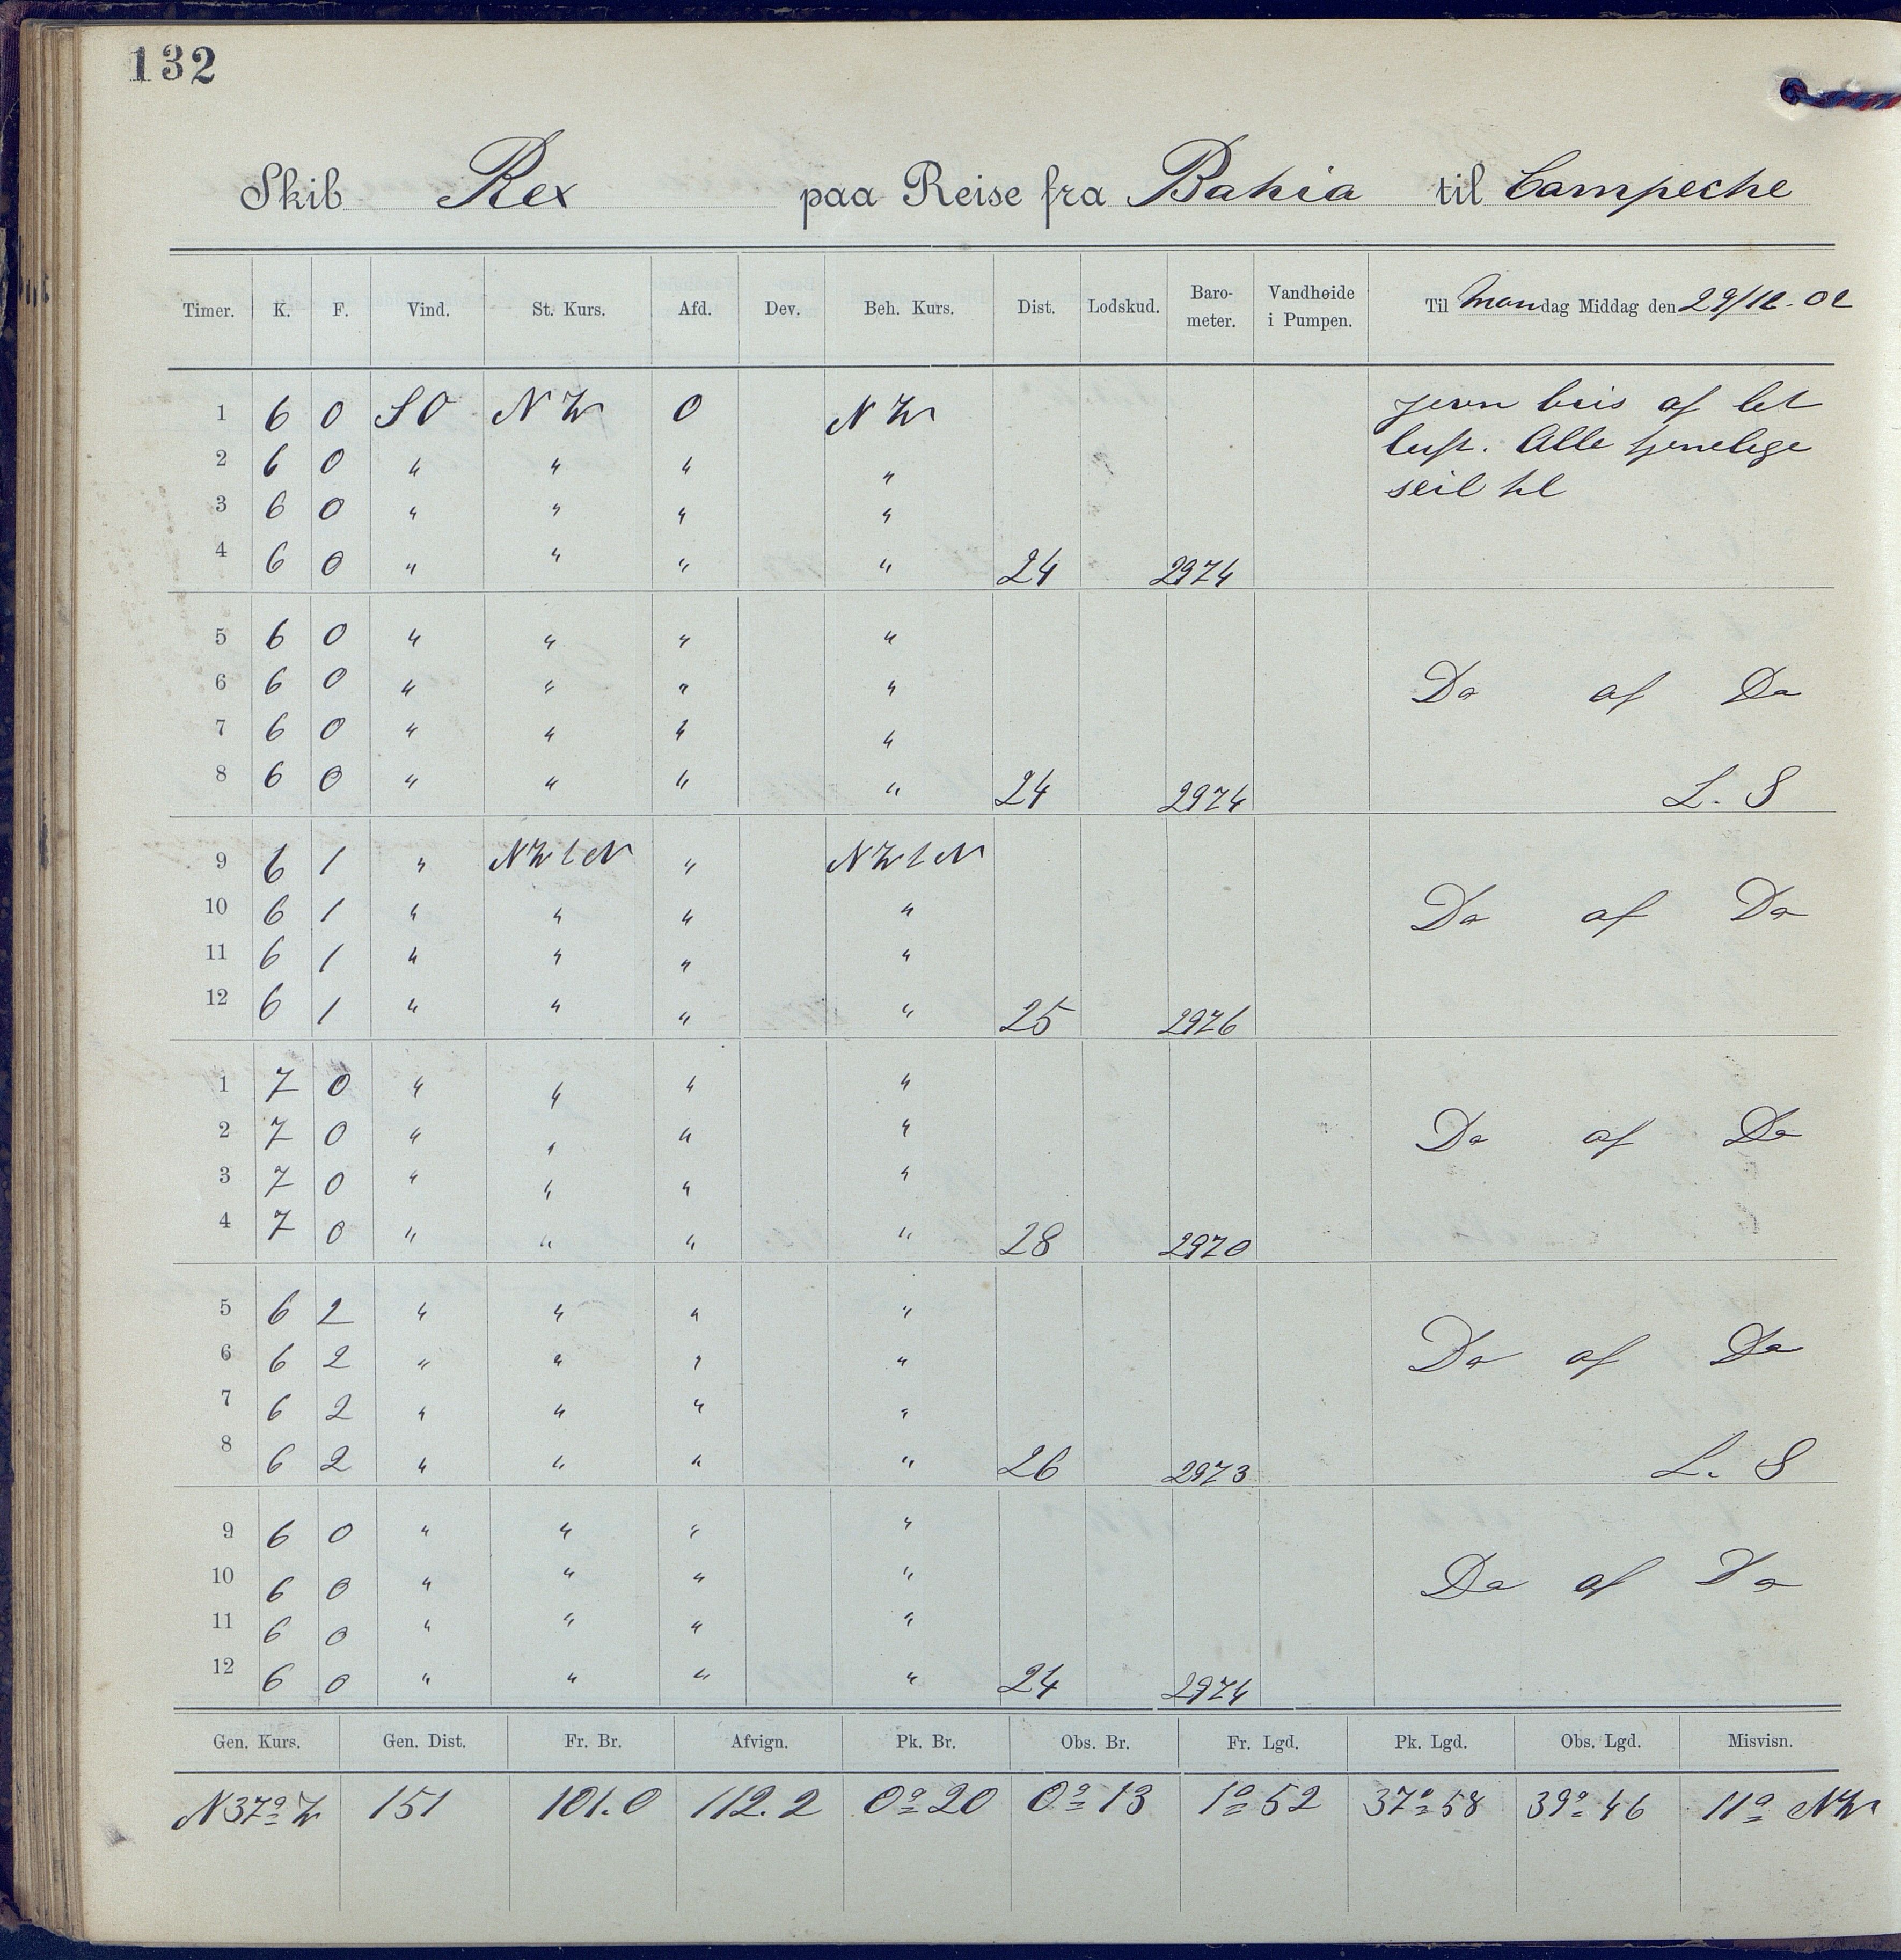 132
Skib Rex paa Reise fra Bahia til Campeche
Timer. K. F. Vind. St. Kurs. Afd. Dev. Beh. Kurs. Dist. Lodskud. Baro-meter. Vandhøide i Pumpen. Til Mandag Middag den 29/12-02
1 6 0 SO NW 0 NW jevn bris af let
2 6 0 " " " " luft. Alle tjenelige
3 6 0 " " " " seil til
4 6 0 " " " " 24 2974
5 6 0 " " " "
6 6 0 " " " " Do af Do
7 6 0 " " " "
8 6 0 " " " " 24 2974 L. S
9 6 1 " NWtN " NWtN
10 6 1 " " " " Do af Do
11 6 1 " " " "
12 6 1 " " " " 25 2976
1 7 0 " " " "
2 7 0 " " " " Do af Do
3 7 0 " " " "
4 7 0 " " " " 28 2970
5 6 2 " " " "
6 6 2 " " " " Do af Do
7 6 2 " " " "
8 6 2 " " " " 26 2973 L. S
9 6 0 " " " "
10 6 0 " " " " Do af Do
11 6 0 " " " "
12 6 0 " " " " 24 2974
Gen. Kurs. Gen. Dist. Fr. Br. Afvign. Pk. Br. Obs. Br. Fr. Lgd. Pk. Lgd. Obs. Lgd. Misvisn.
N37°W 151 101.0 112.2 0° 20 0° 13 1° 52 37° 58 39° 46 11° NW